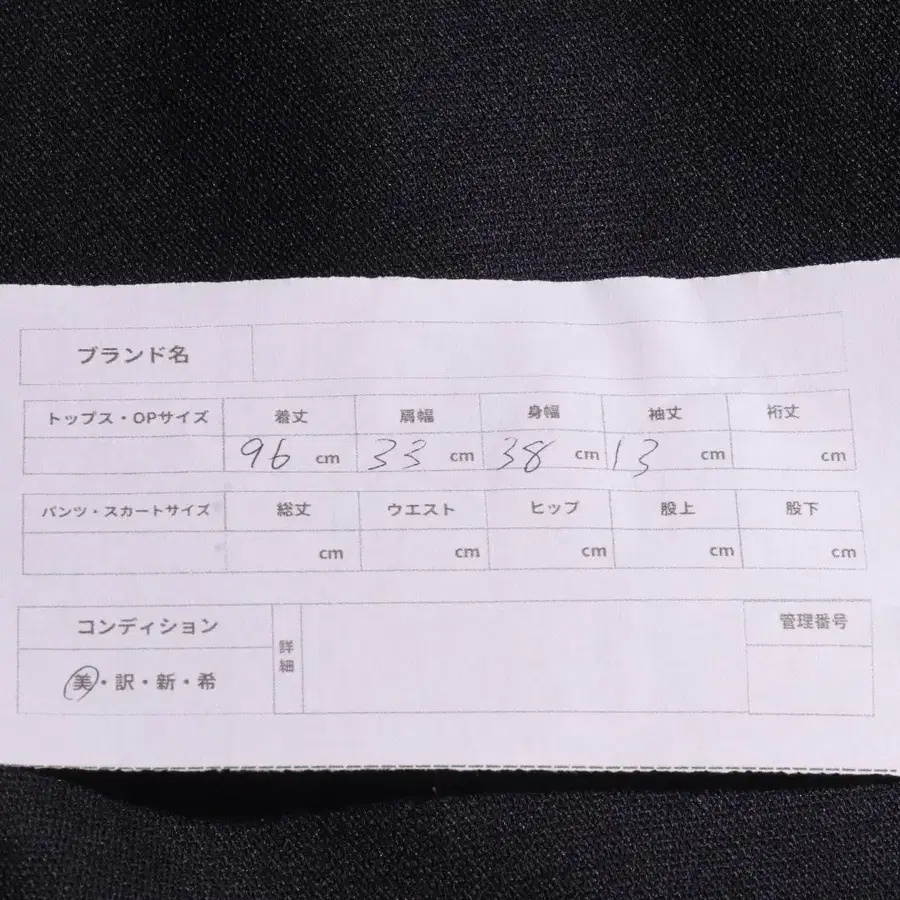 ブランド名
トップス・OPサイズ 着丈 肩幅 身幅 袖丈 裄丈
96 cm 33 cm 38 cm 13 cm cm
パンツ・スカートサイズ 総丈 ウエスト ヒップ 股上 股下
cm cm cm cm cm
コンディション 詳細 管理番号
美・訳・新・希